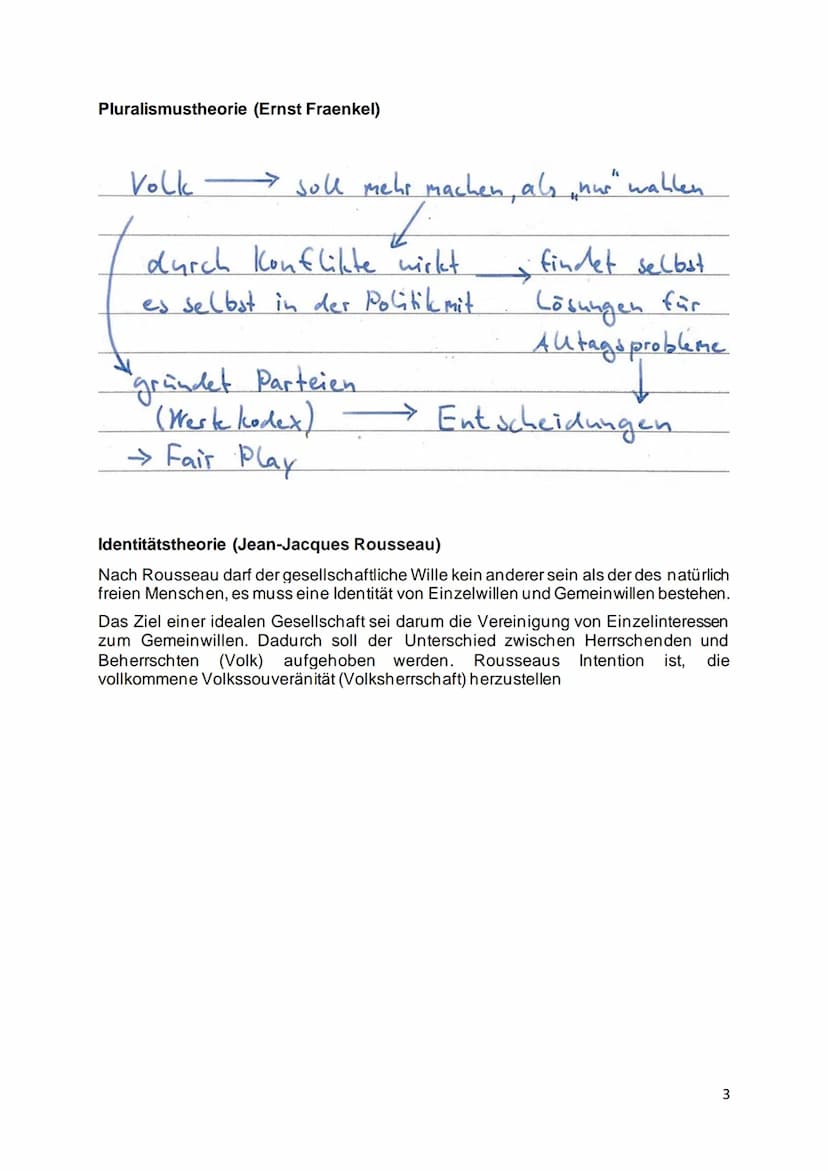 Pluralismustheorie (Ernst Fraenkel)
Volk → soll mehr machen, als „nur" wahlen
durch Konflikte wirkt → findet selbst
es selbst in der Politik mit Lösungen für
Alltagsprobleme
gründet Parteien
(Wertekodex) → Entscheidungen
→ Fair Play
Identitätstheorie (Jean-Jacques Rousseau)
Nach Rousseau darf der gesellschaftliche Wille kein anderer sein als der des natürlich
freien Menschen, es muss eine Identität von Einzelwillen und Gemeinwillen bestehen.
Das Ziel einer idealen Gesellschaft sei darum die Vereinigung von Einzelinteressen
zum Gemeinwillen. Dadurch soll der Unterschied zwischen Herrschenden und
Beherrschten (Volk) aufgehoben werden. Rousseaus Intention ist, die
vollkommene Volkssouveränität (Volksherrschaft) herzustellen
3